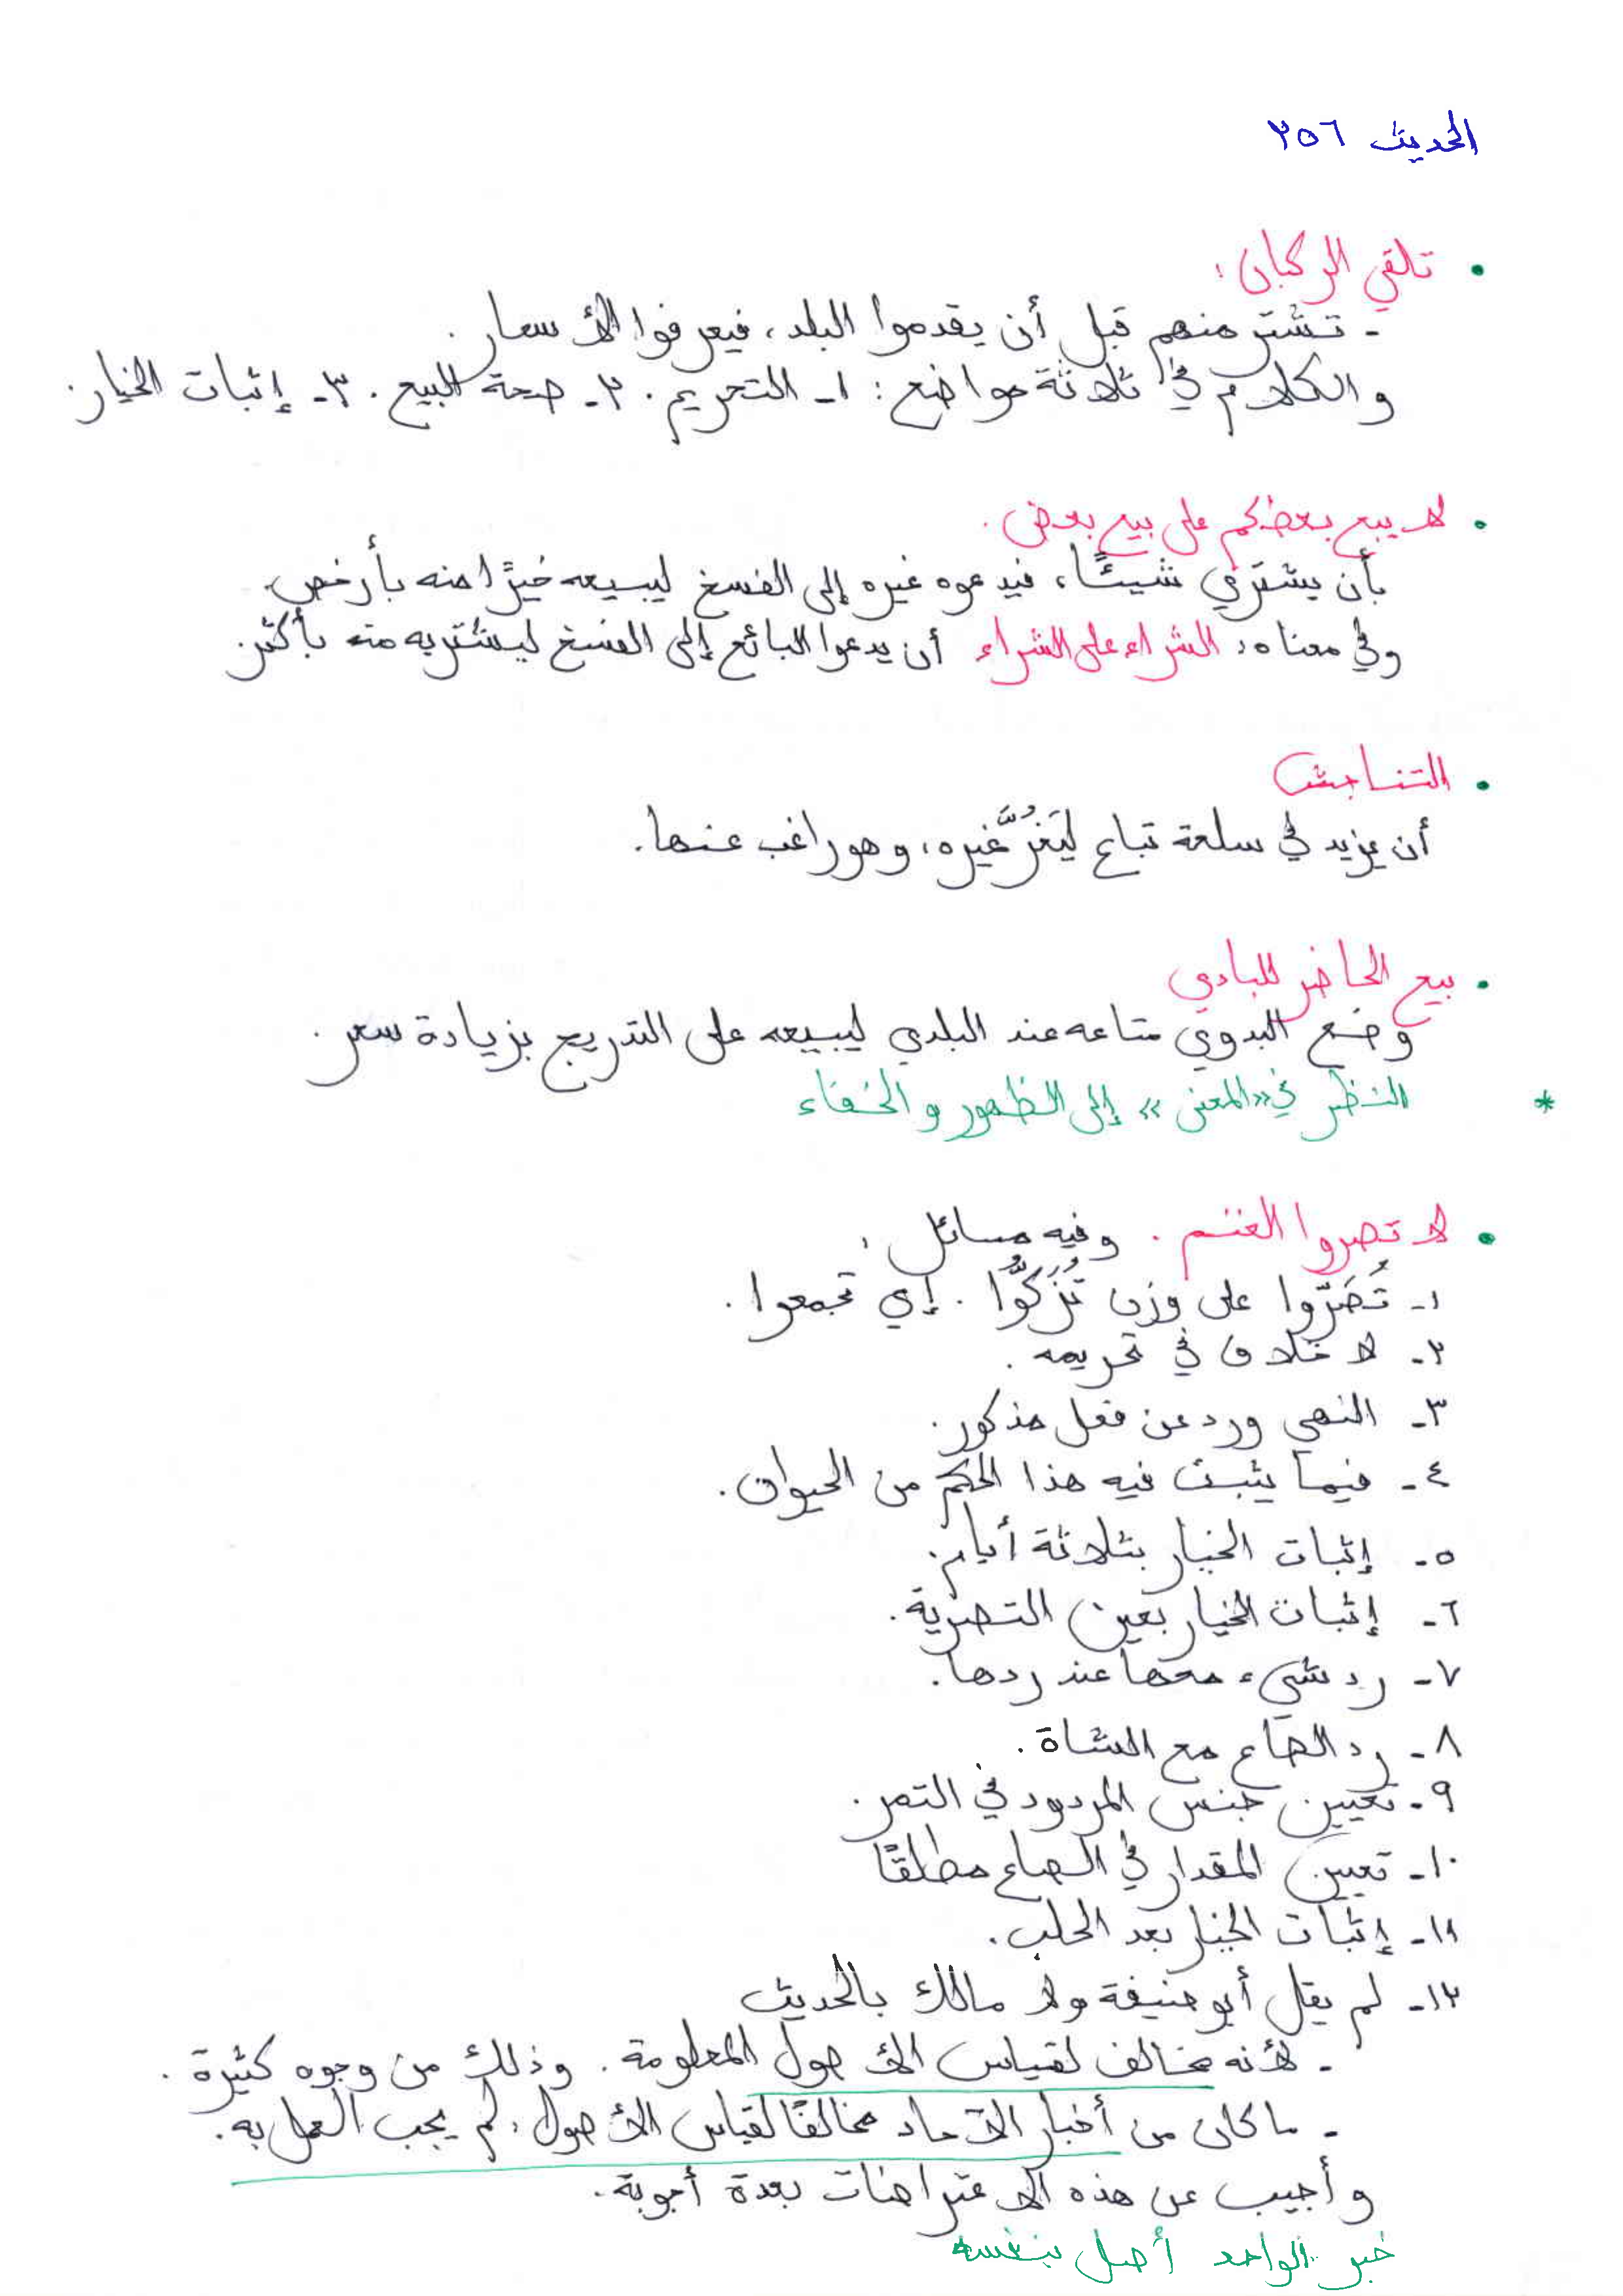 الحديث ٢٥٦
• تلقي الركبان :
- تشتر منهم قبل أن يقدموا البلد، فيعرفوا الأسعار.
والكلام في ثلاثة مواضع : ١- التحريم . ٢- صحة البيع . ٣- إثبات الخيار.
• لا يبع بعضكم على بيع بعض .
بأن يشتري شيئًا، فيدعوه غيره إلى الفسخ ليبيعه خيرًا منه بأرخص.
وفي معناه: الشراء على الشراء أن يدعوا البائع إلى الفسخ ليشتريه منه بأكثر.
• التناجش
أن يزيد في سلعة تباع ليَغُرَّ غيره، وهو راغب عنها.
• بيع الحاضر للبادي
وضع البدوي متاعه عند البلدي ليبيعه على التدريج بزيادة سعر.
* النظر في «المعنى» إلى الظهور والخفاء
• لا تصروا الغنم . وفيه مسائل :
١- تُصَرّوا على وزن تُزَكُّوا . إي تجمعوا .
٢- لا خلاف في تحريمه .
٣- النهي ورد عن فعل مذكور.
٤- فيما يثبت فيه هذا الحكم من الحيوان .
٥- إثبات الخيار بثلاثة أيام.
٦- إثبات الخيار بعين التصرية.
٧- رد شيء معها عند ردها.
٨- رد الصاع مع الشاة .
٩- تعيين جنس المردود في التمر.
١٠- تعيين المقدار في الصاع مطلقًا
١١- إثبات الخيار بعد الحلب.
١٢- لم يقل أبو حنيفة ولا مالك بالحديث
- لأنه مخالف لقياس الأصول المعلومة. وذلك من وجوه كثيرة .
- ما كان من أخبار الآحاد مخالفًا لقياس الأصول، لم يجب العمل به.
وأجيب عن هذه الاعتراضات بعدة أجوبة.
خبر الواحد أصل بنفسه